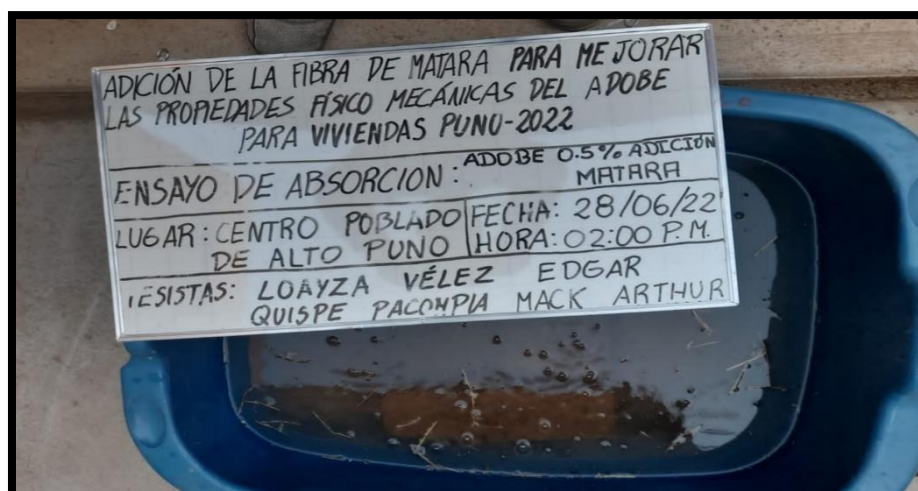 ADICIÓN DE LA FIBRA DE MATARA PARA MEJORAR
LAS PROPIEDADES FÍSICO MECÁNICAS DEL ADOBE
PARA VIVIENDAS PUNO-2022
ENSAYO DE ABSORCION: ADOBE 0.5% ADICIÓN
MATARA
LUGAR: CENTRO POBLADO
DE ALTO PUNO
FECHA: 28/06/22
HORA: 02:00 P.M.
TESISTAS: LOAYZA VÉLEZ EDGAR
QUISPE PACOMPIA MACK ARTHUR